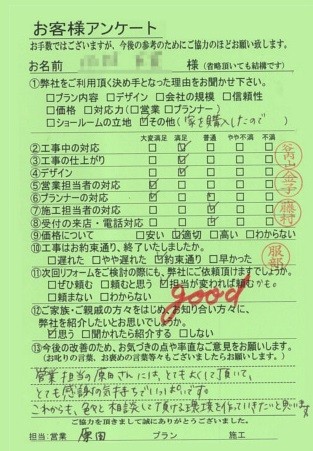 お客様アンケート
お手数ではございますが、今後の参考のためにご協力のほどお願い致します。
お名前 様 (省略頂いても結構です)
①弊社をご利用頂く決め手となった理由をお聞かせ下さい。
□プラン内容 □デザイン □会社の規模 □信頼性
□価格 □対応力(□営業 □プランナー)
□ショールームの立地 ☑その他(家を購入したので)
大変満足 満足 普通 やや不満 不満
②工事中の対応 □ ☑ □ □ □
③工事の仕上がり □ ☑ □ □ □
④デザイン □ ☑ □ □ □
⑤営業担当者の対応 ☑ □ □ □ □
⑥プランナーの対応 ☑ □ □ □
⑦施工担当者の対応 □ □ ☑ □ □
⑧受付の来店・電話対応 □ □ ☑ □ □
⑨価格について □安い ☑適切 □高い □わからない
⑩工事はお約束通り、終了いたしましたか。
□遅れた □やや遅れた ☑約束通り □早かった
⑪次回リフォームをご検討の際にも、弊社にご依頼頂けますでしょうか。
□ぜひ頼む □頼むと思う ☑担当が変われば頼むかも。
□頼まない □わからない
good
⑫ご家族・ご親戚の方々をはじめ、お知り合い方々に、
弊社を紹介したいとお思いでしょうか。
☑思う □聞かれたら紹介する □しない
⑬今後の改善のため、お気づきの点や率直なご意見をお願いします。
(お叱りの言葉、お褒めの言葉等々もございましたらお願いします。)
営業担当の原田さんには、とてもよくして頂いて、
とても感謝の気持ちでいっぱいです。
これからも、色々と相談して頂ける環境を作っていきたいと思います
ご協力を頂きまして誠にありがとうございました。
担当:営業 原田 プラン 施工
服部
藤村